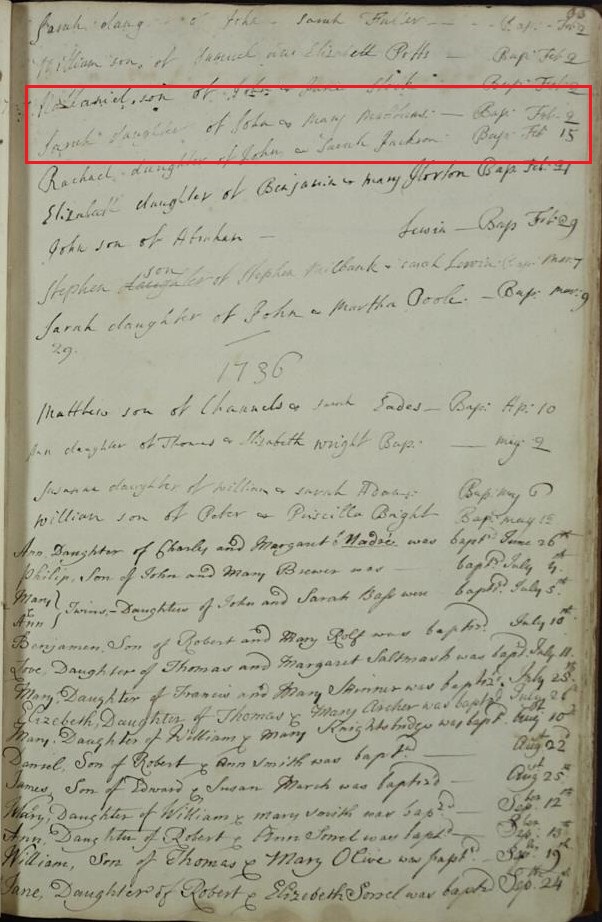 Sarah daug of John Sarah Bap: Feb 2
William son of Samuel and Elizabeth Potts — Bap: Feb 2
Nathaniel son of John & Jane Bap: Feb 2
Sarah daughter of John & Mary — Bap: Feb: 2
Rachael daughter of John & Sarah Jackson Bap: Feb 15
Elizabeth daughter of Benjamin & Mary Horton Bap Feb: 21
John son of Abraham — Lewin — Bap Feb: 29
Stephen son of Stephen Milbank & Sarah Lewin Bap: Mar 7
Sarah daughter of John & Martha Poole — Bap: Mar: 9
29.
1736
Matthew son of & Sarah Eades — Bap: Ap: 10
Ann daughter of Thomas & Elizabeth Wright Bap: — May: 2
Susanna daughter of William & Sarah Adams Bap: May 6
William son of Peter & Priscilla Bright Bap: May 12
Ann, Daughter of Charles and Margaret was bapt.d June 26th
Philip, Son of John and Mary Brewer was — bapt.d July 4th
Mary } Twins, Daughters of John and Sarah Bass were bapt.d July 5th
Ann }
Benjamen, Son of Robert and Mary Rolf was baptiz.d July 10th
Love, Daughter of Thomas and Margaret Saltmash was bapt.d July 11
Mary, Daughter of Francis and Mary Skinner was baptiz.d July 25th
Elizebeth, Daughter of Thomas & Mary Archer was baptiz.d July 26
Mary, Daughter of William & Mary Knightsbridge was bapt.d Aug 10th
Daniel, Son of Robert & Ann Smith was bapt.d — Aug 22d
James, Son of Edward & Susan March was baptizd — Aug 25th
Mary, Daughter of William & Mary Smith was bap.zd — Sep.ber 12th
Ann, Daughter of Robert & Ann Sorrel was bapt.d — Sep.ber 13th
William, Son of Thomas & Mary Olive was bapt.d — Sep. 19th
Jane, Daughter of Robert & Elizebeth Sorrel was baptizd Sep. 24th